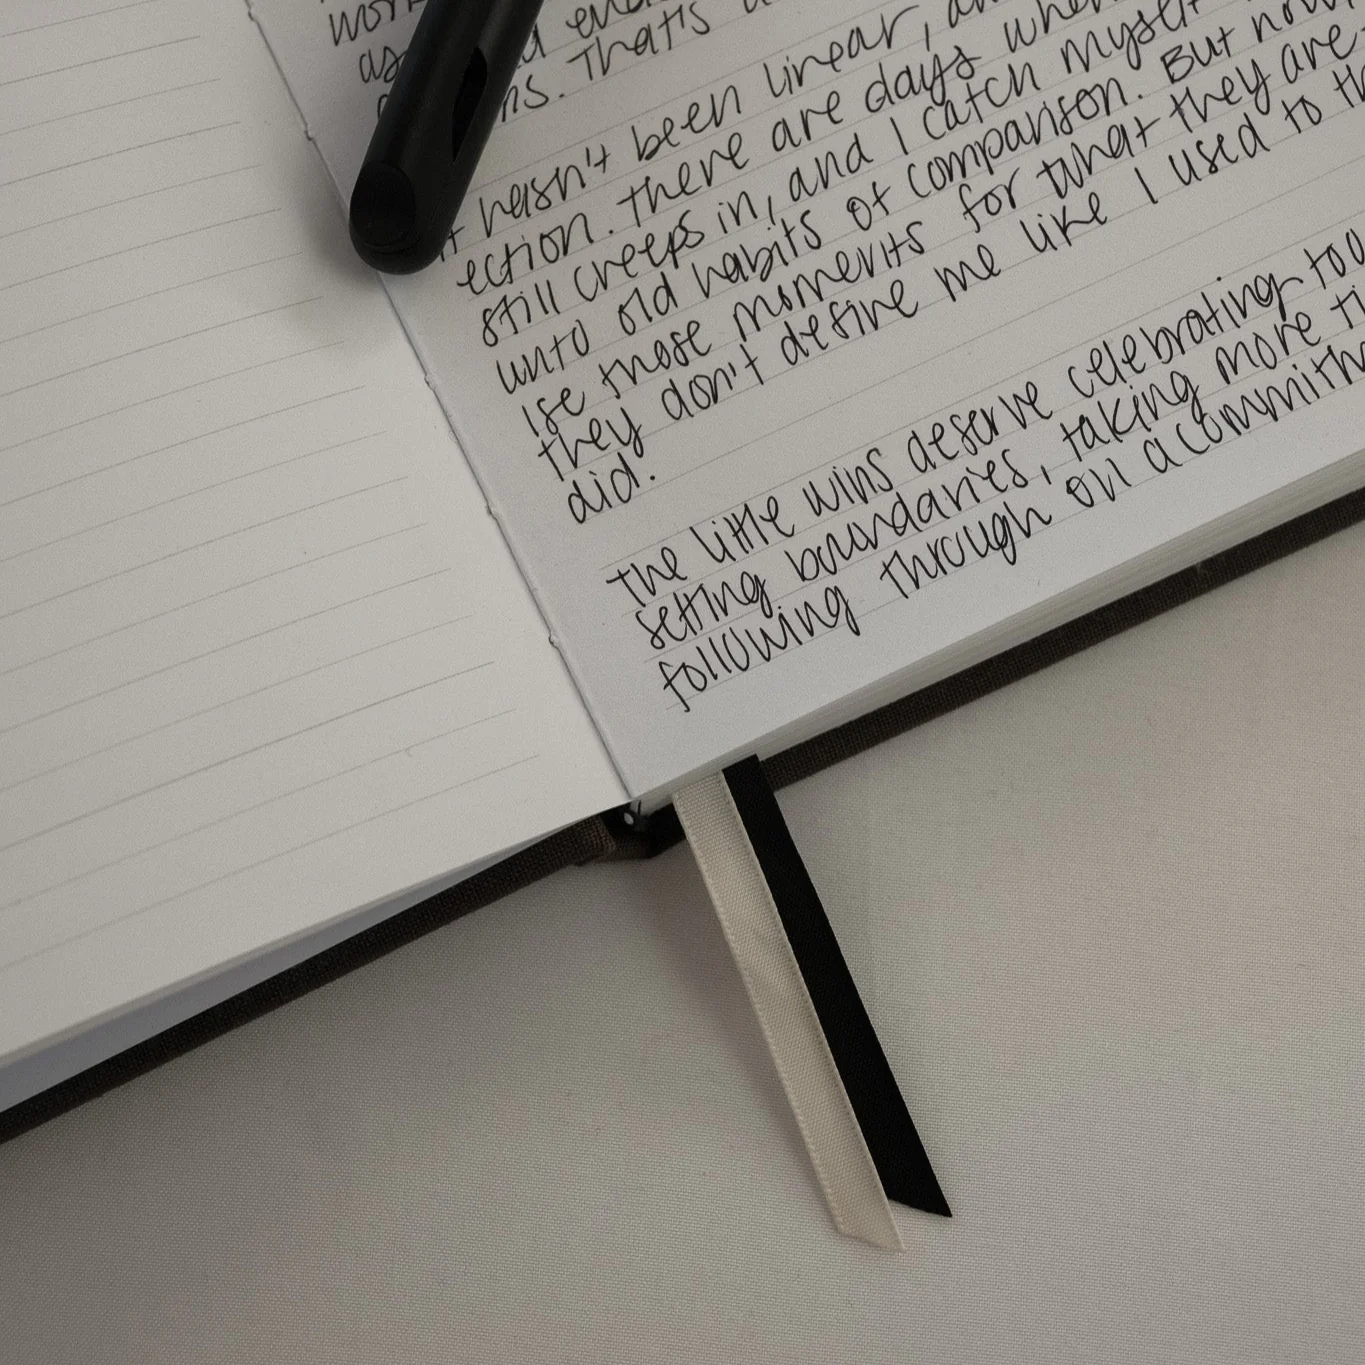 work
as
ns. That's
hasn't been linear,
ection. There are days when
still creeps in, and I catch myself
unto old habits of comparison. But now
ise those moments for what they are
they don't desire me like I used to
did.
the little wins deserve celebrating too
setting boundaries, taking more
following through on a